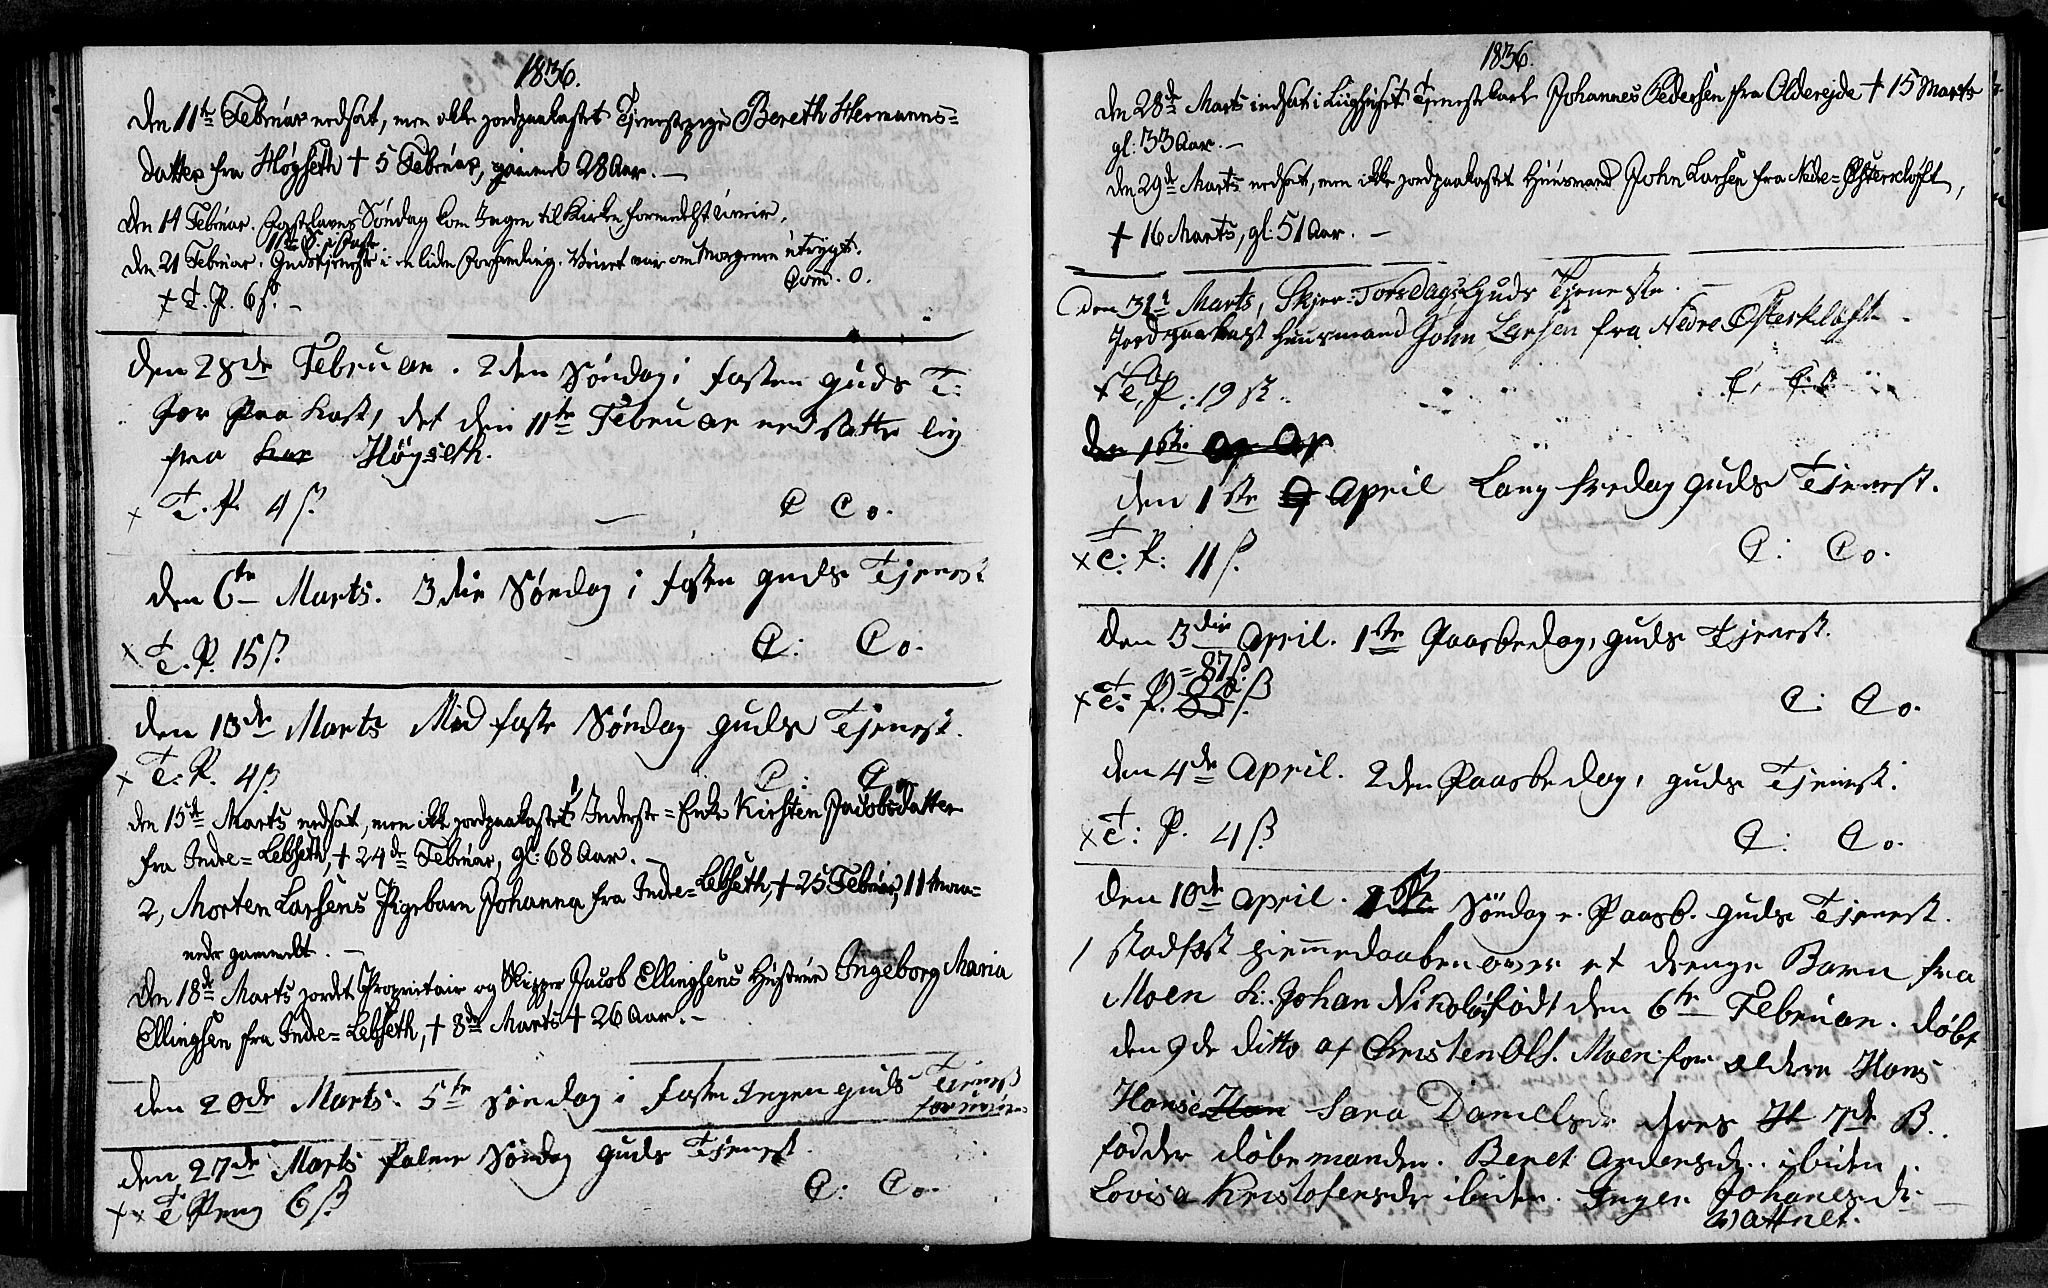 1836.
Den 11te Februar nedsat, men ikke jordpaakastet Tjenestepige Bereth Hermanns=
datter fra Høgseth † 5 Februar, gammel 28 Aar. —
Den 14 Februar. Fastelavns Søndag kom Ingen til Kirke formedelst Uveir.
1ste S. i Faste
Den 21 Februar. Gudstjeneste i en liden Forsamling. Veiret var om Morgenen utrygt.
Com. 0.
+ T. P. 6 ß. —
den 28de Februar. 2den Søndag i fasten guds T:
Jor Paa Kast, det den 11te Februar nedsatte lig
fra Høgseth.
x T. P. 4 ß. — C Co.
den 6te Marts. 3die Søndag i fasten guds Tjenest
x T. P. 15 ß. C: Co.
den 13de Marts Mid faste Søndag guds Tjenest.
x T: P. 4 ß C: C
den 15de Marts nedsat, men ikke jordpaakastet 1, Inderste=Enke Kirsten Jacobsdatter
fra Indre=Lebseth, † 24de Februar, gl: 68 Aar. —
2, Morten Larsens Pigebarn Johanna fra Indre=Lebseth, † 25 Februar, 11 Maa=
neder gammelt. —
Den 18de Marts jordet Proprietair og Skipper Jacob Ellingsens Hustrue Ingeborg Maria
Ellingsen fra Indre=Lebseth, † 8de Marts † 26 Aar. —
den 20de Marts. 5te Søndag i fasten Ingen guds Tjenest
for uveir
den 27de Marts Palme Søndag guds Tjenest.
x x T Peng 6 ß C: Co.
1836.
Den 28de Marts indsat i Liighuset Tjenestekarl Johannes Pedersen fra Oldereide † 15 Marts
gl: 33 Aar. —
Den 29de Marts nedsat, men ikke jordpaakastet Huusmand John Larsen fra Nedre=Østerkløft,
† 16 Marts, gl: 51 Aar. —
Den 31te Marts, Skjer=TorsdagsGuds Tjeneste. —
Jordpaakast Huusmand John Larsen fra Nedre Østerkløft.
P: 19 ß.
den 1ste Ap Ap
den 1ste April Lang fredag guds Tjenest.
x T: P: 11 ß. C: Co.
den 3die April. 1ste Paaskedag, guds Tjenest.
= 87 ß
x T: P. C: Co.
den 4de April. 2den Paaskedag, guds Tjenest.
x T: P. 4 ß C: Co.
den 10de April. 1ste Søndag e. Paask. guds Tjenest.
1 stadfæst hiemmedaaben over et drenge Barn fra
Moen k: Johan Nikolai født den 6te Februar. døbt
den 9de ditto af Christen Ols. Moen. for ældre Hans
Hansen Sara Danielsdr deres 7de B.
fadder døbemanden. Beret Andersdr. ibiden.
Lovisa Kristofersdr ibiden. Inger Johanesdr —
Wattnet.